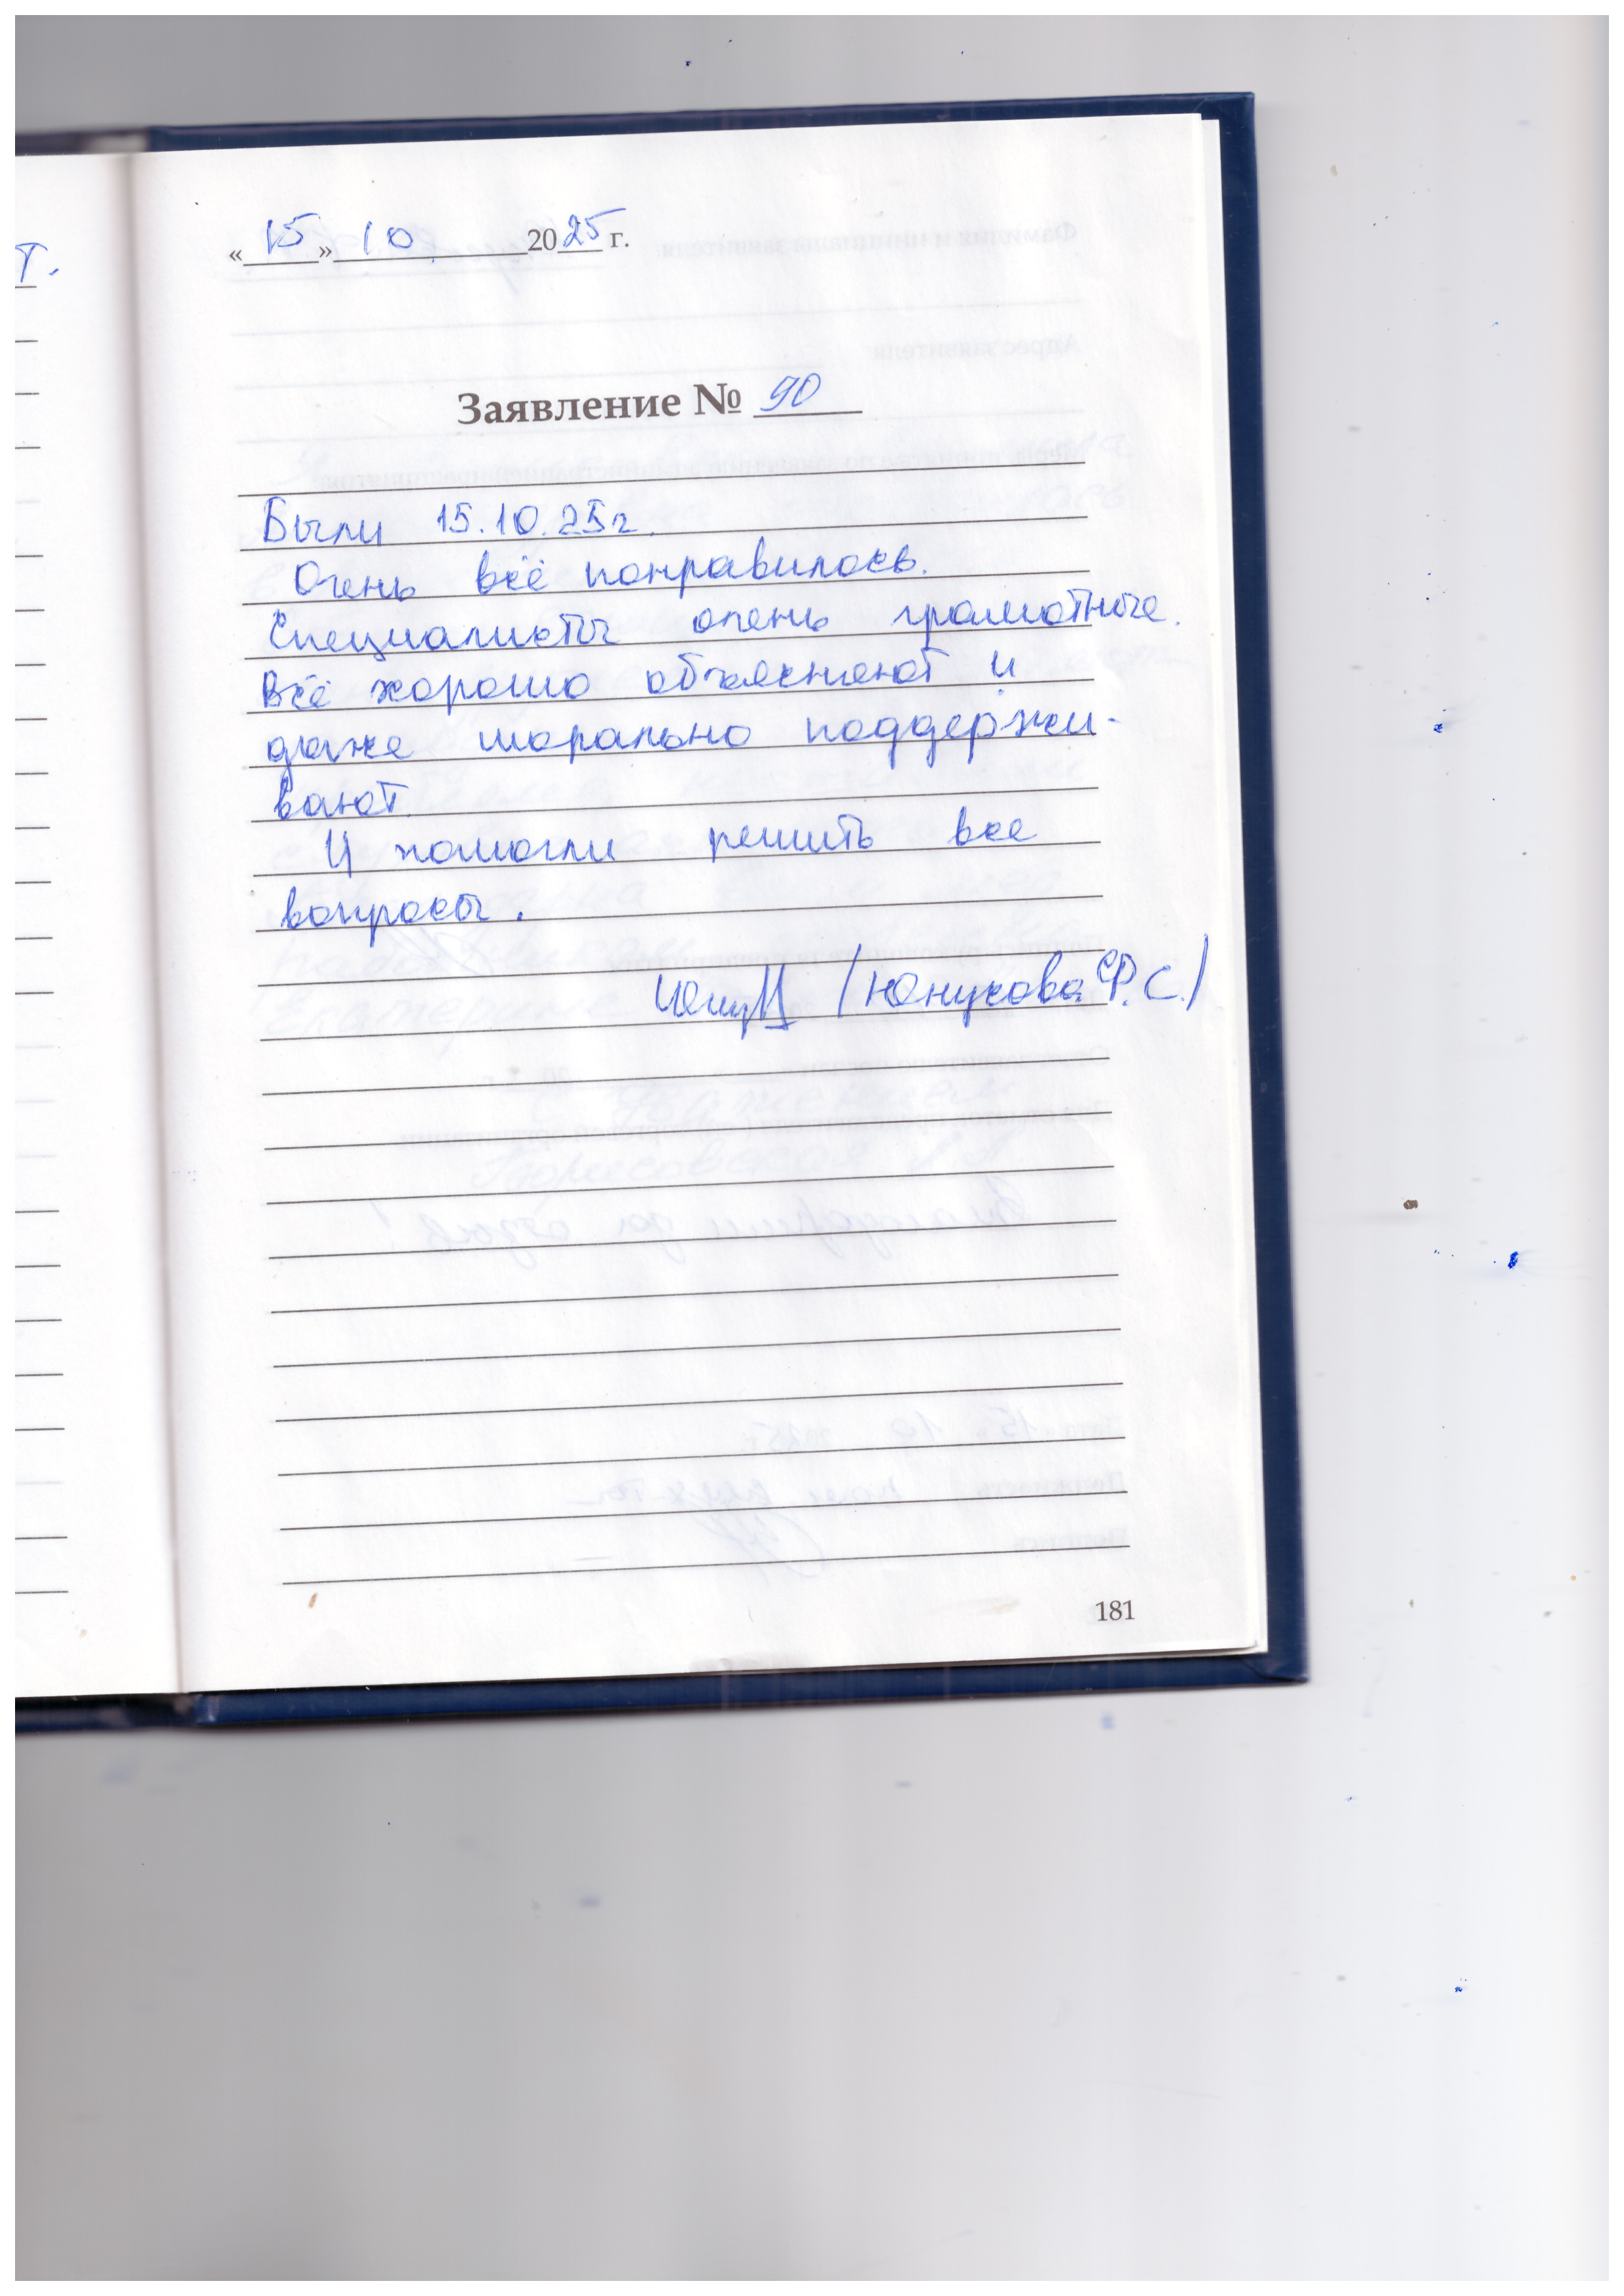 Т.
«15» 10 2025 г.
Заявление № 90
Были 15.10.25г.
Очень всё понравилось.
Специалисты очень грамотные.
Всё хорошо объясняют и
даже морально поддержи-
вают.
И помогли решить все
вопросы.
(Юнусова Ф.С.)
181